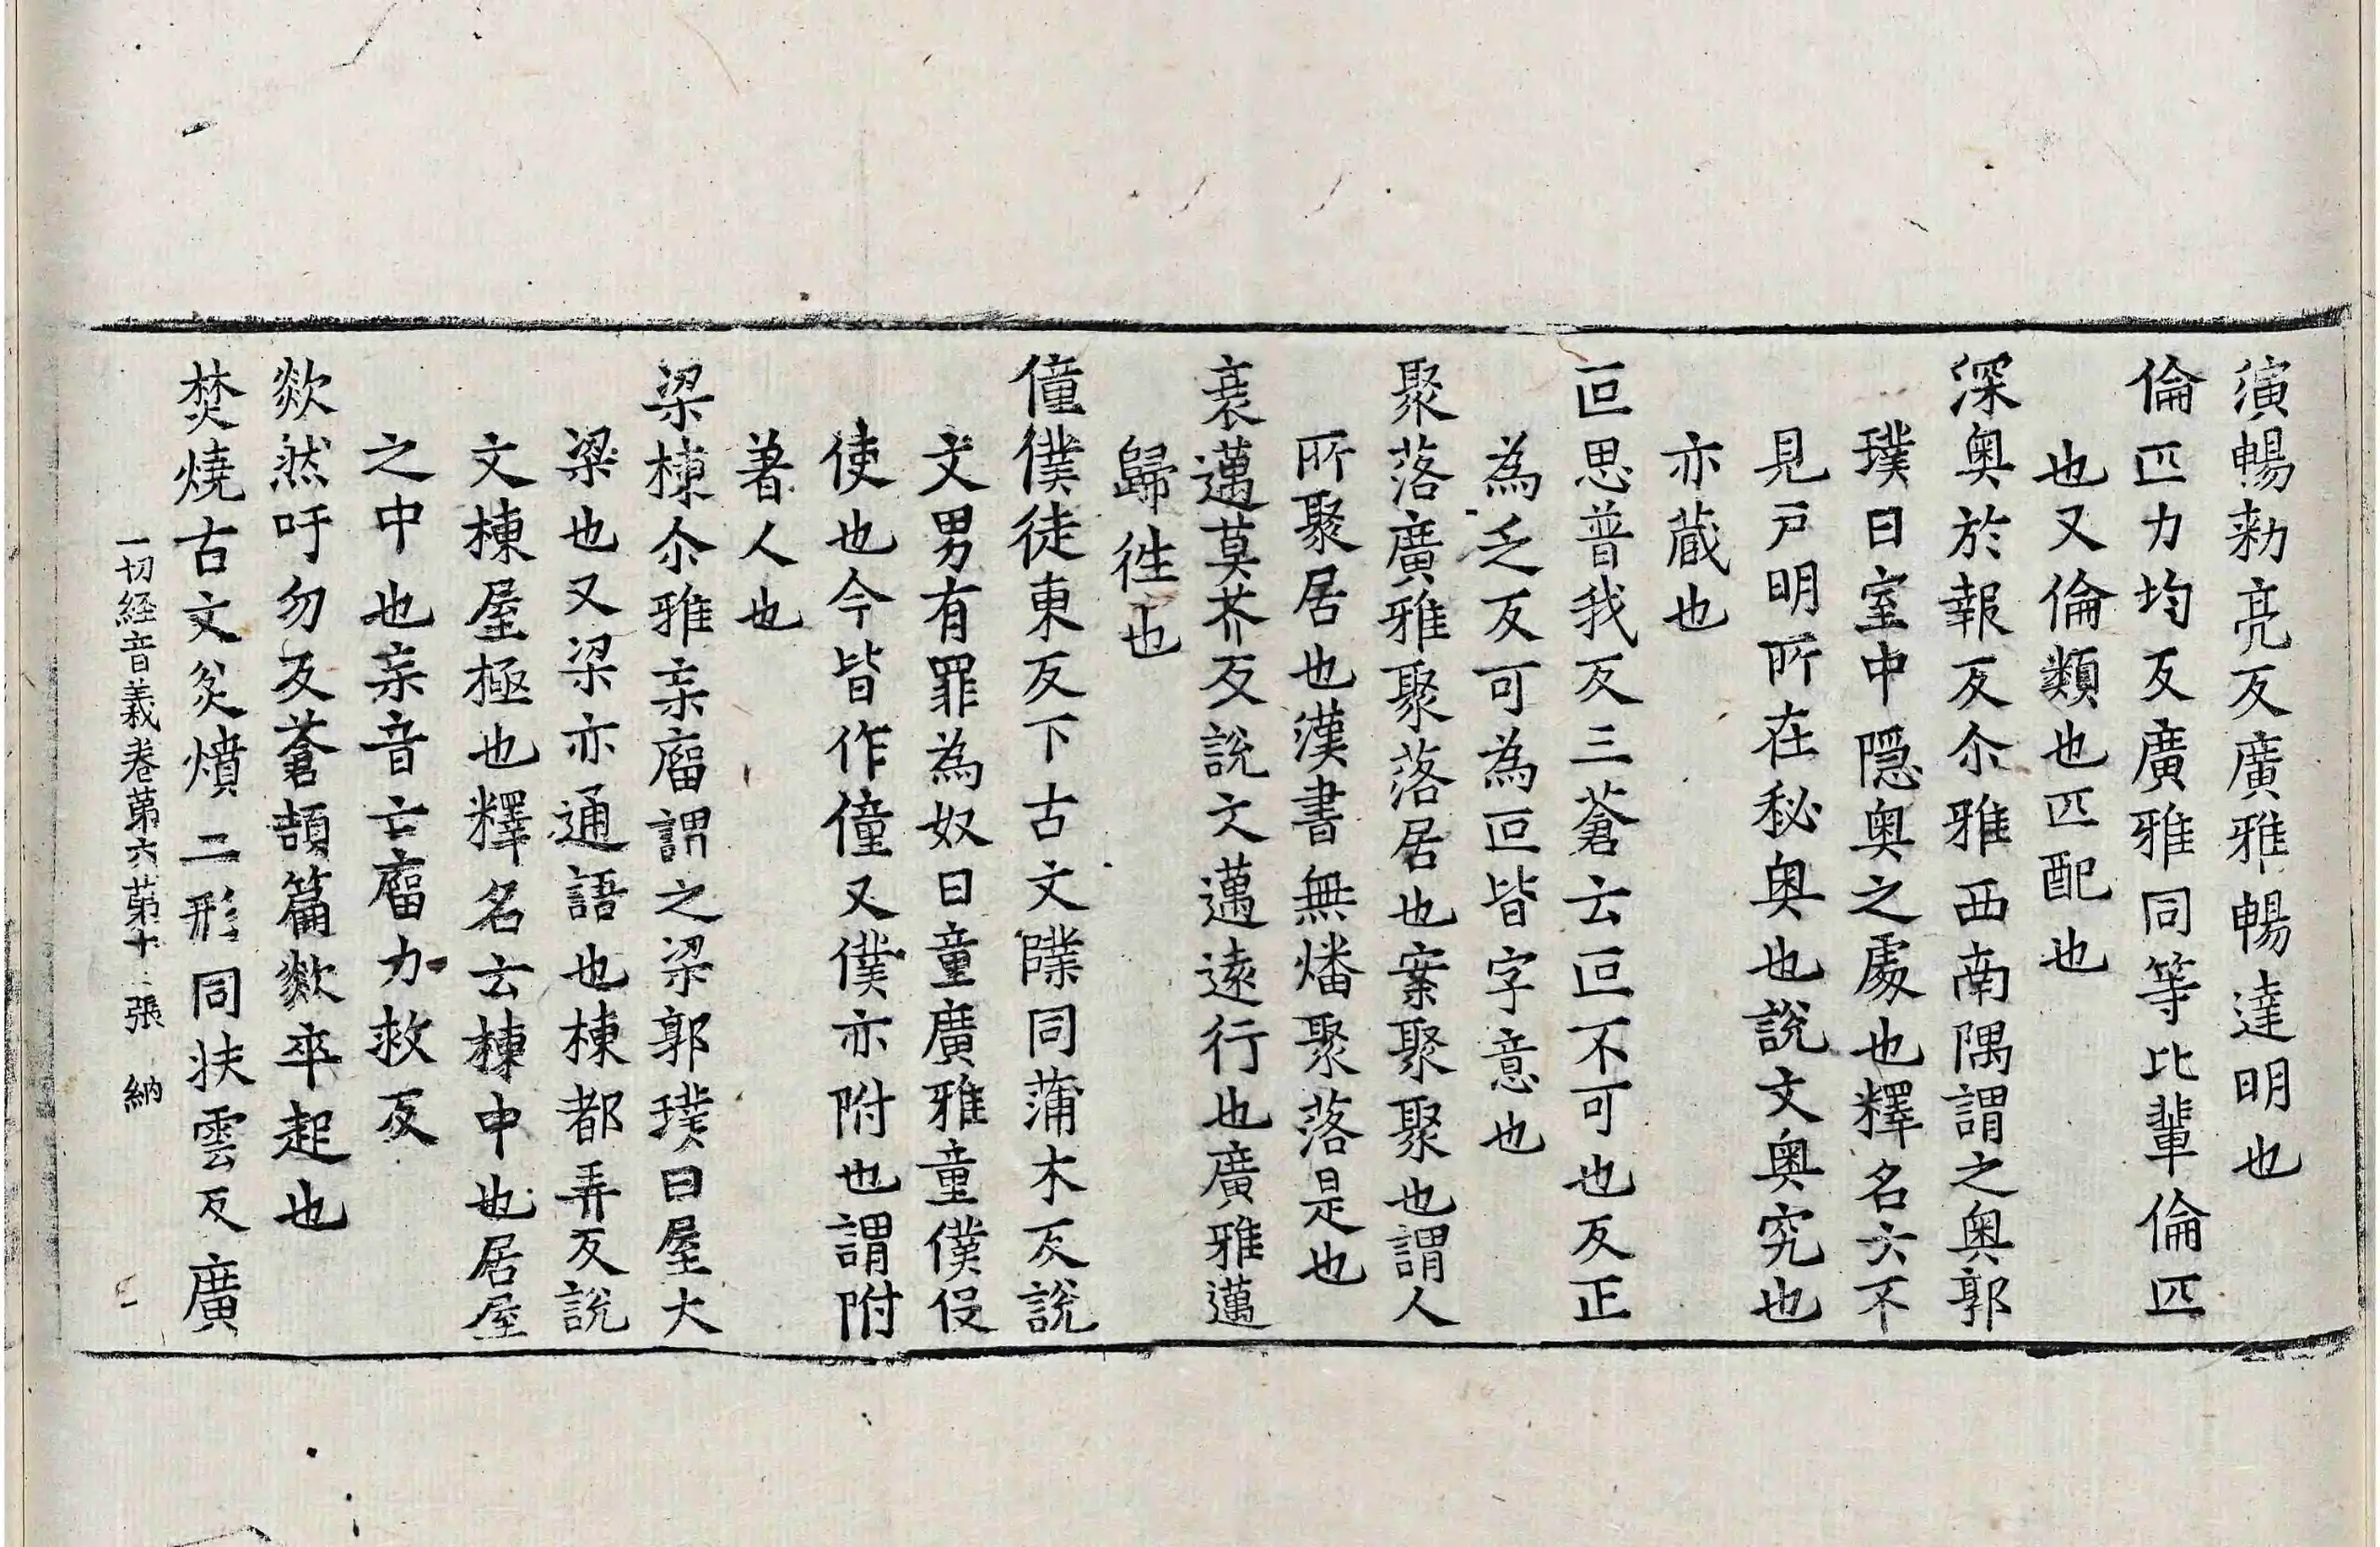 演暢勑亮反廣雅暢達明也
倫匹力均反廣雅同等比輩倫匹
也又倫類也匹配也
深奧於報反尒雅西南隅謂之奧郭
璞曰室中隱奧之處也釋名云不
見戶明所在秘奧也說文奧究也
亦蔵也
叵思普我反三蒼云叵不可也反正
為乏反可為叵皆字意也
聚落廣雅聚落居也案聚聚也謂人
所聚居也漢書無燔聚落是也
衰邁莫芥反說文邁遠行也廣雅邁
歸徃也
僮僕徒東反下古文䑑同蒲木反說
文男有罪為奴曰童廣雅童僕伇
使也今皆作僮又僕亦附也謂附
著人也
梁棟尒雅杗廇謂之梁郭璞曰屋大
梁也又梁亦通語也棟都弄反說
文棟屋極也釋名云棟中也居屋
之中也杗音亡廇力救反
欻然吁勿反蒼頡篇欻卒起也
焚燒古文炃燌二形同扶雲反廣
一切経音義卷苐六苐十 張 納